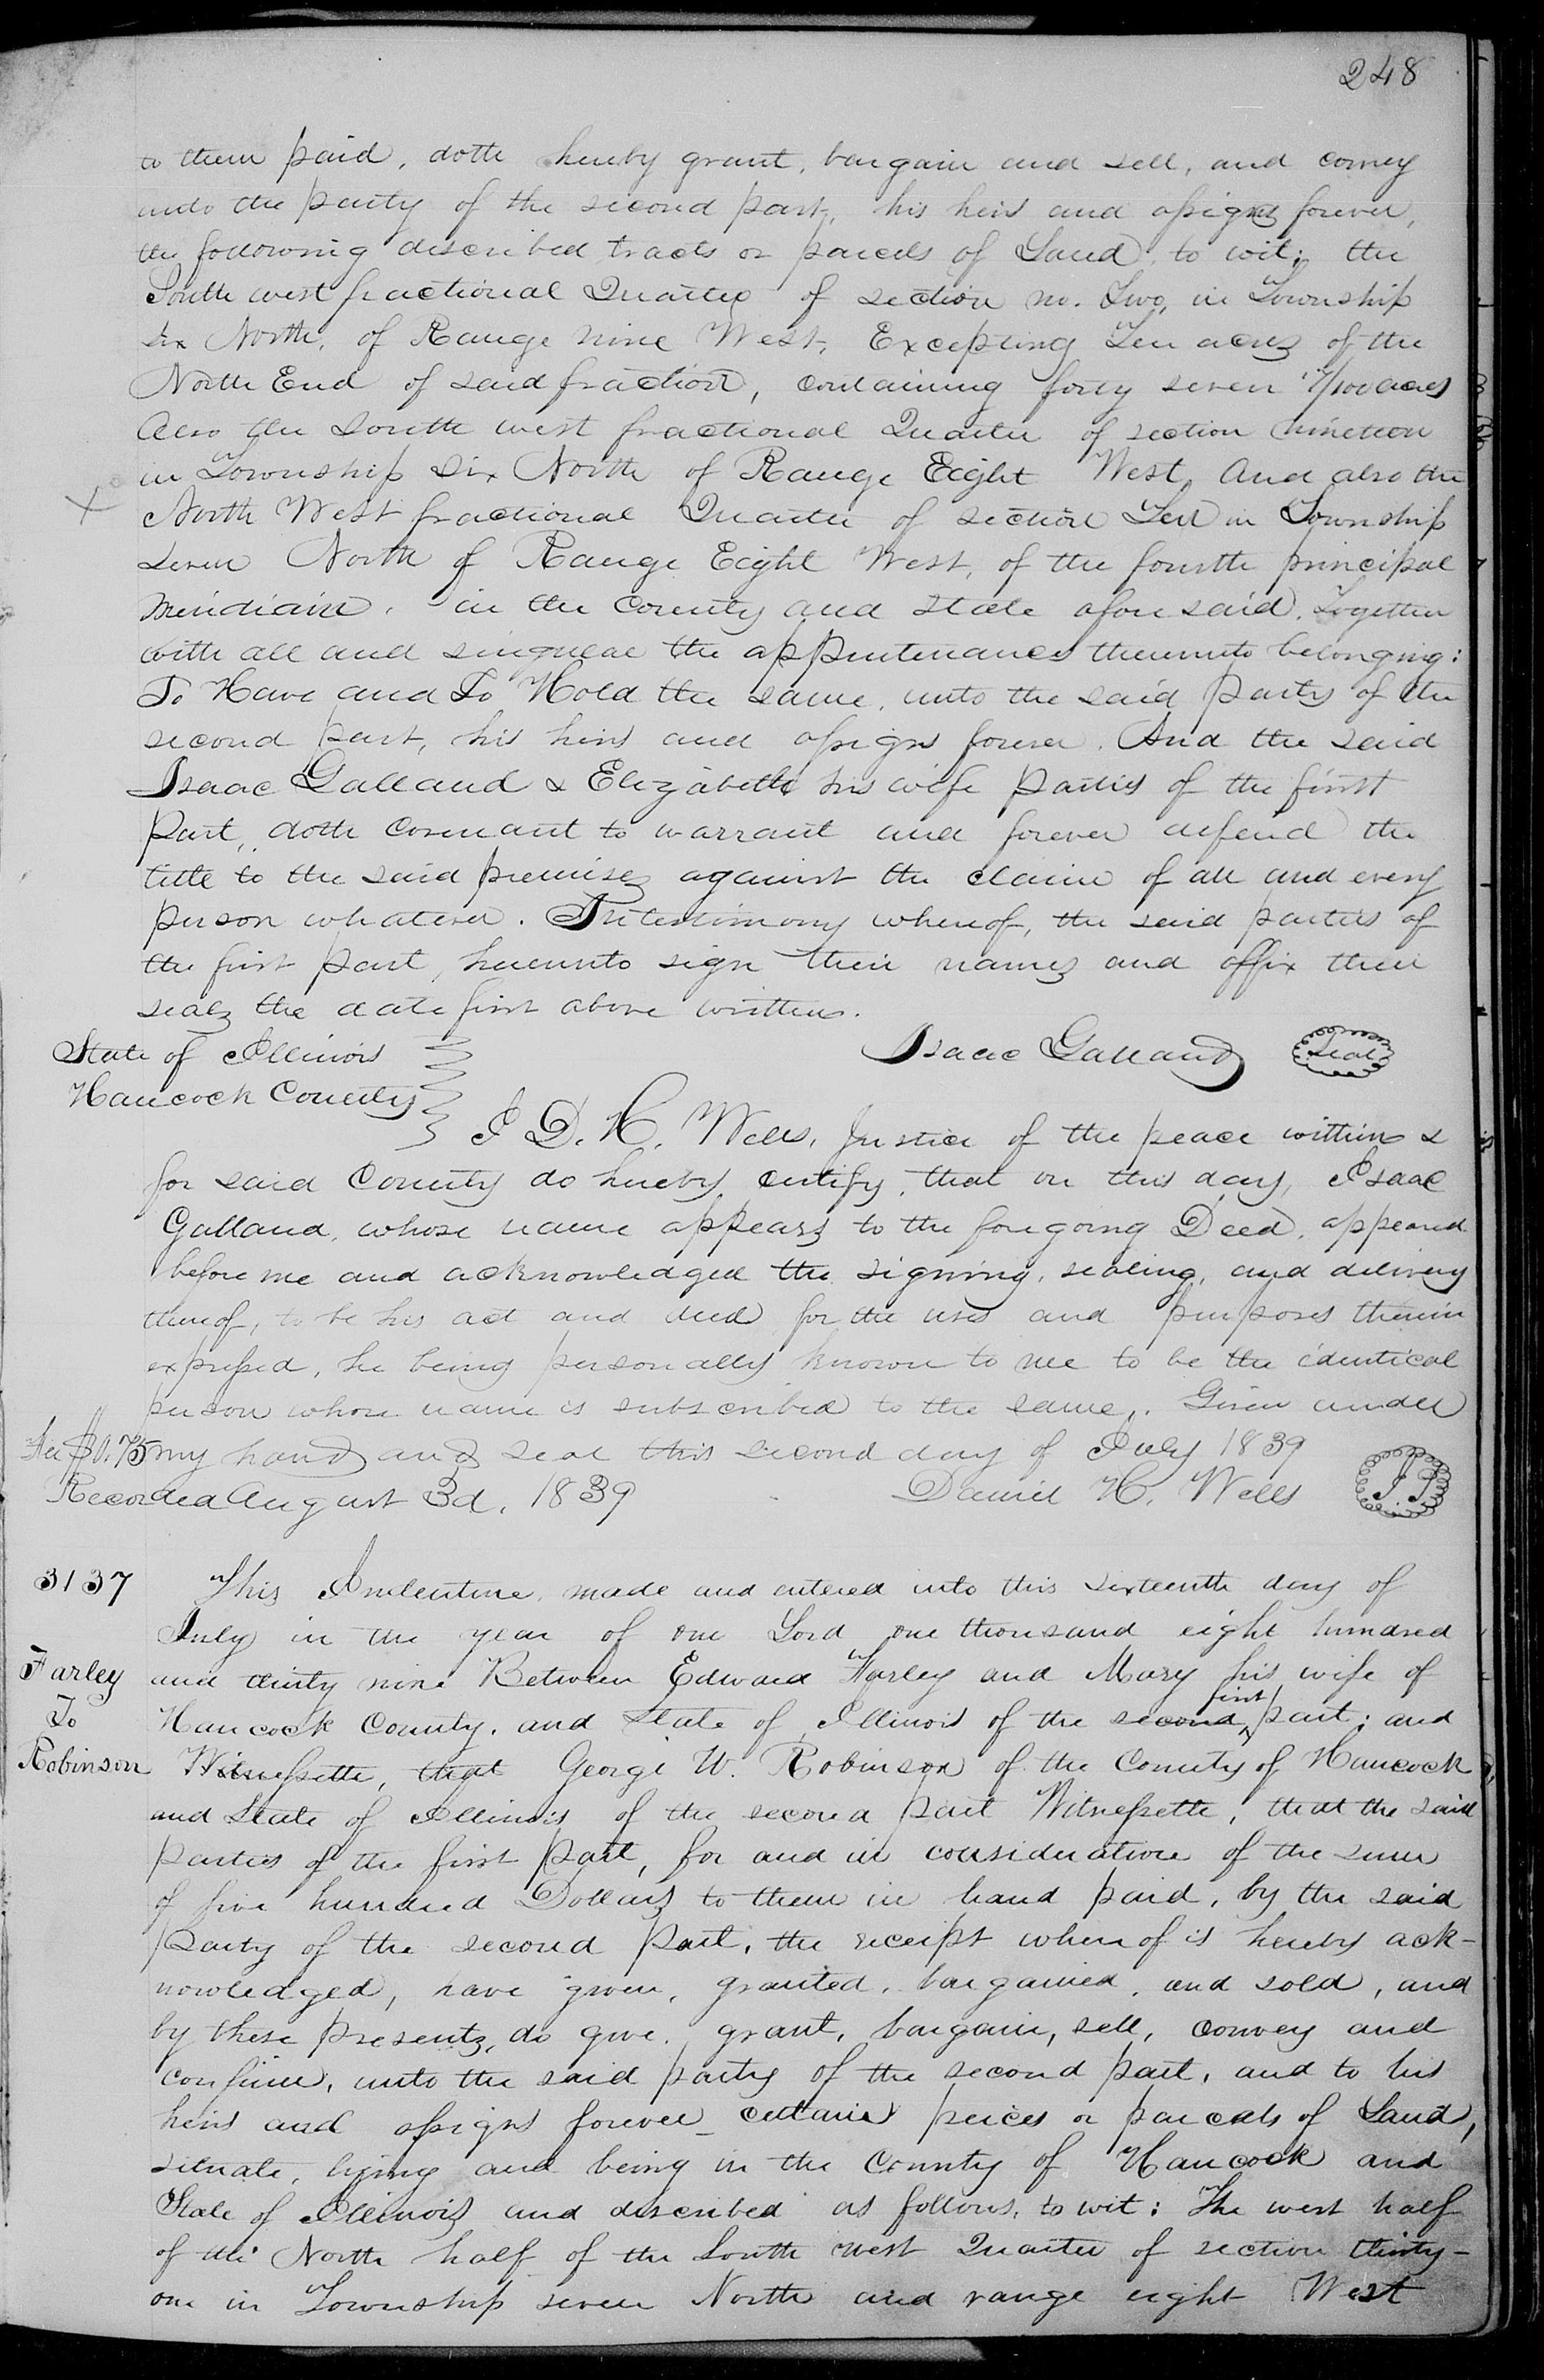 248
to them paid, doth hereby grant, bargain and sell, and convey
unto the party of the second part, his heirs and assigns forever,
the following described tracts or parcels of Land, to wit; the
South west fractional Quarter of section no. Two, in Township
six North, of Range nine West, Excepting Ten acres of the
North End of said fraction, containing forty seven /100 acres
Also the South west fractional Quarter of section nineteen
in Township Six North of Range Eight West, And also the
North West fractional Quarter of section Ten in Township
seven North of Range Eight West, of the fourth principal
Meridian. in the County and State aforesaid. Together
with all and singular the appurtenances thereunto belonging:
To Have and To Hold the same, unto the said party of the
second part, his heirs and assigns forever. And the said
Isaac Galland & Elizabeth his wife parties of the first
part, doth Covenant to warrant and forever defend the
title to the said premises against the claim of all and every
person whatever. In testimony whereof, the said parties of
the first part, hereunto sign their names and affix their
seals the date first above written.
Isaac Galland Seal
State of Illinois
Hancock County
I D. H. Wells, Justice of the peace within &
for said County do hereby certify, that on this day, Isaac
Galland, whose name appears to the foregoing Deed, appeared
before me and acknowledged the signing, sealing, and delivery
thereof, to be his act and deed for the uses and purposes therein
expressed, he being personally known to me to be the identical
person whose name is subscribed to the same. Given under
Fee $0.75 my hand and seal this second day of July 1839
Recorded August 3d. 1839 Daniel H. Wells
3137 This Indenture made and entered into this sixteenth day of
July in the year of our Lord one thousand eight hundred
Farley and thirty nine Between Edward Farley and Mary his wife of
first
To Hancock County, and State of Illinois of the second part; and
Robinson Witnesseth, that George W. Robinson of the County of Hancock
and State of Illinois of the second part Witnesseth, that the said
parties of the first part, for and in consideration of the sum
of five hundred Dollars to them in hand paid, by the said
party of the second part, the receipt whereof is hereby ack-
nowledged, have given, granted, bargained, and sold, and
by these presents, do give, grant, bargain, sell, convey and
confirm, unto the said party of the second part, and to his
heirs and assigns forever certain peices or parcels of Land,
situate, lying and being in the County of Hancock and
State of Illinois and described as follows, to wit: The west half
of the North half of the South west Quarter of section thirty-
one in Township seven North and range eight West